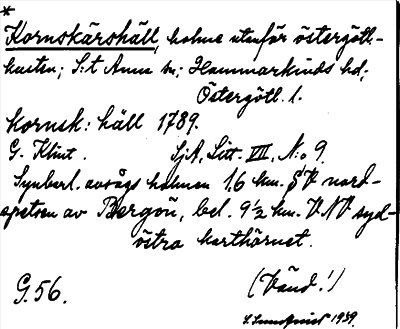 *
Kornskärshäll, holme utanför östergötl.-
kusten; S:t Anna sn; Hammarkinds hd;
Östergötl. l.
Kornsk: häll 1789.
G. Klint. SjA, Litt. VII, N:o 9.
Synberl. avsågs holmen 1,6 km. SV nord-
spetsen av Bergön, bel. 9½ km. VNV syd-
östra karthörnet.
G. 56. (Vänd!)
S. Sundquist 1939.